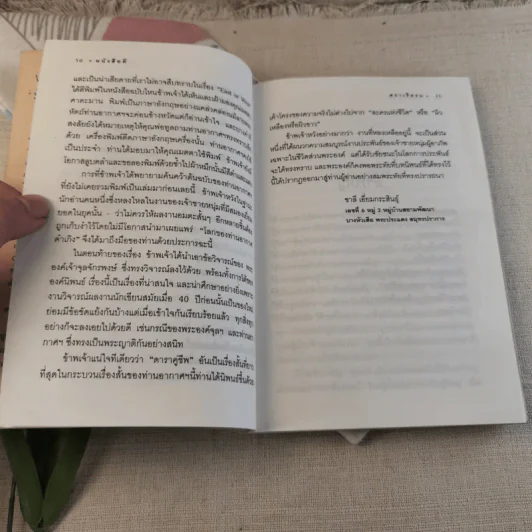 ๖๐ • หนังสือดี
และเป็นน่าเสียดายที่เราไม่อาจสืบทราบในเรื่อง "East or West"
ได้ตีพิมพ์ในหนังสือฉบับไหนข้าพเจ้าได้เห็นและเฝ้ามองคุณ
คาตะมาน พิมพ์เป็นภาษาอังกฤษอย่างแคล่วคล่อง
ทัตถ์ท่านอากาศฯจะค่อนข้างหวัดแต่ก็อ่านเข้าใจ และ
สงสัยยังได้หมายเหตุให้คุณพ่อทูลถามท่านอากาศฯ
ด้วย เครื่องพิมพ์ดีดภาษาอังกฤษเครื่องนั้น ท่านอากาศ
เป็นประจำ ท่านได้มอบมาให้คุณแมตตาใช้พิมพ์ ข้าพเจ้า
โอกาสลูบคลำและชอลองพิมพ์ด้วยซ้ำไปผ้าหมึกนั้นมีสีดำ
การที่ข้าพเจ้าได้พยายามค้นคว้าต้นฉบับของท่านอากาศ
ที่ยังไม่เคยรวมพิมพ์เป็นเล่มมาก่อนเลยนี้ ข้าพเจ้าหวังในฐานะ
นักอ่านคนหนึ่งซึ่งหลงใหลในงานของเจ้าชายหนุ่มที่มีสมอง
ยอดในยุคนั้น - ว่าไม่ควรให้ผลงานอมตะสั้นๆ อีกหลายชิ้น
ถูกเก็บงำไว้โดยไม่มีโอกาสนำมาเผยแพร่ "โลกของท่านอากาศ
ดำเกิง" จึงได้มาถึงมือของท่านด้วยประการฉะนี้
ในตอนท้ายของเรื่อง ข้าพเจ้าได้นำเอาข้อวิจารณ์ของ พระ
องค์เจ้าจุลจักรพงษ์ ซึ่งทรงวิจารณ์ลงไว้ด้วย พร้อมทั้งการโต้ของ
องค์นิพนธ์ เรื่องนี้เป็นเรื่องที่น่าสนใจ และน่าศึกษาอย่างยิ่งเพราะ
งานวิจารณ์ผลงานนักเขียนสมัยเมื่อ 40 ปีก่อนนั้นเป็นของใหม่
ย่อมมีข้อขัดแย้งกันบ้างแต่เมื่อเข้าใจกันเรียบร้อยแล้ว ทุกสิ่งทุก
อย่างก็จะลงเอยไปด้วยดี เช่นกรณีของพระองค์จุลฯ และท่าน
กาศฯ ซึ่งทรงเป็นพระญาติกันอย่างสนิท
ข้าพเจ้าแน่ใจทีเดียวว่า "ดาราคู่ชีพ" อันเป็นเรื่องสั้นที่ยาว
ที่สุดในกระบวนเรื่องสั้นของท่านอากาศฯนี้ท่านได้นิพนธ์ขึ้นด้วย
เค้าโครงของความจริงไม่ต่างไปจาก "ละครแห่งชีวิต" หรือ "ผิว
เหลืองหรือผิวขาว"
ข้าพเจ้าหวังอย่างมากว่า งานที่หลงเหลืออยู่นี้ จะเป็นส่วน
หนึ่งที่ได้ผนวกความสมบูรณ์งานประพันธ์ของเจ้าชายหนุ่มผู้อาภัพ
เฉพาะในชีวิตส่วนพระองค์ แต่ได้รับชัยชนะในโลกการประพันธ์
จะได้ทรงทราบ และพระองค์ก็คงพอพระทัยที่บทนิพนธ์ที่ได้ทรงไว้
นี้ได้ปรากฏออกมาสู่ท่านผู้อ่านอย่างสมพระทัยที่ทรงปรารถนา
ชาลี เอี่ยมกระสินธุ์
เลขที่ 6 หมู่ 3 หมู่บ้านสยามพัฒนา
บางหัวเสือ พระประแดง สมุทรปราการ